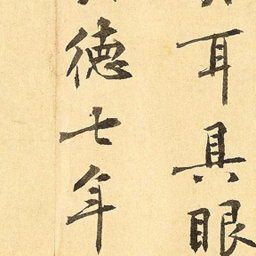 耳具眼
德七年